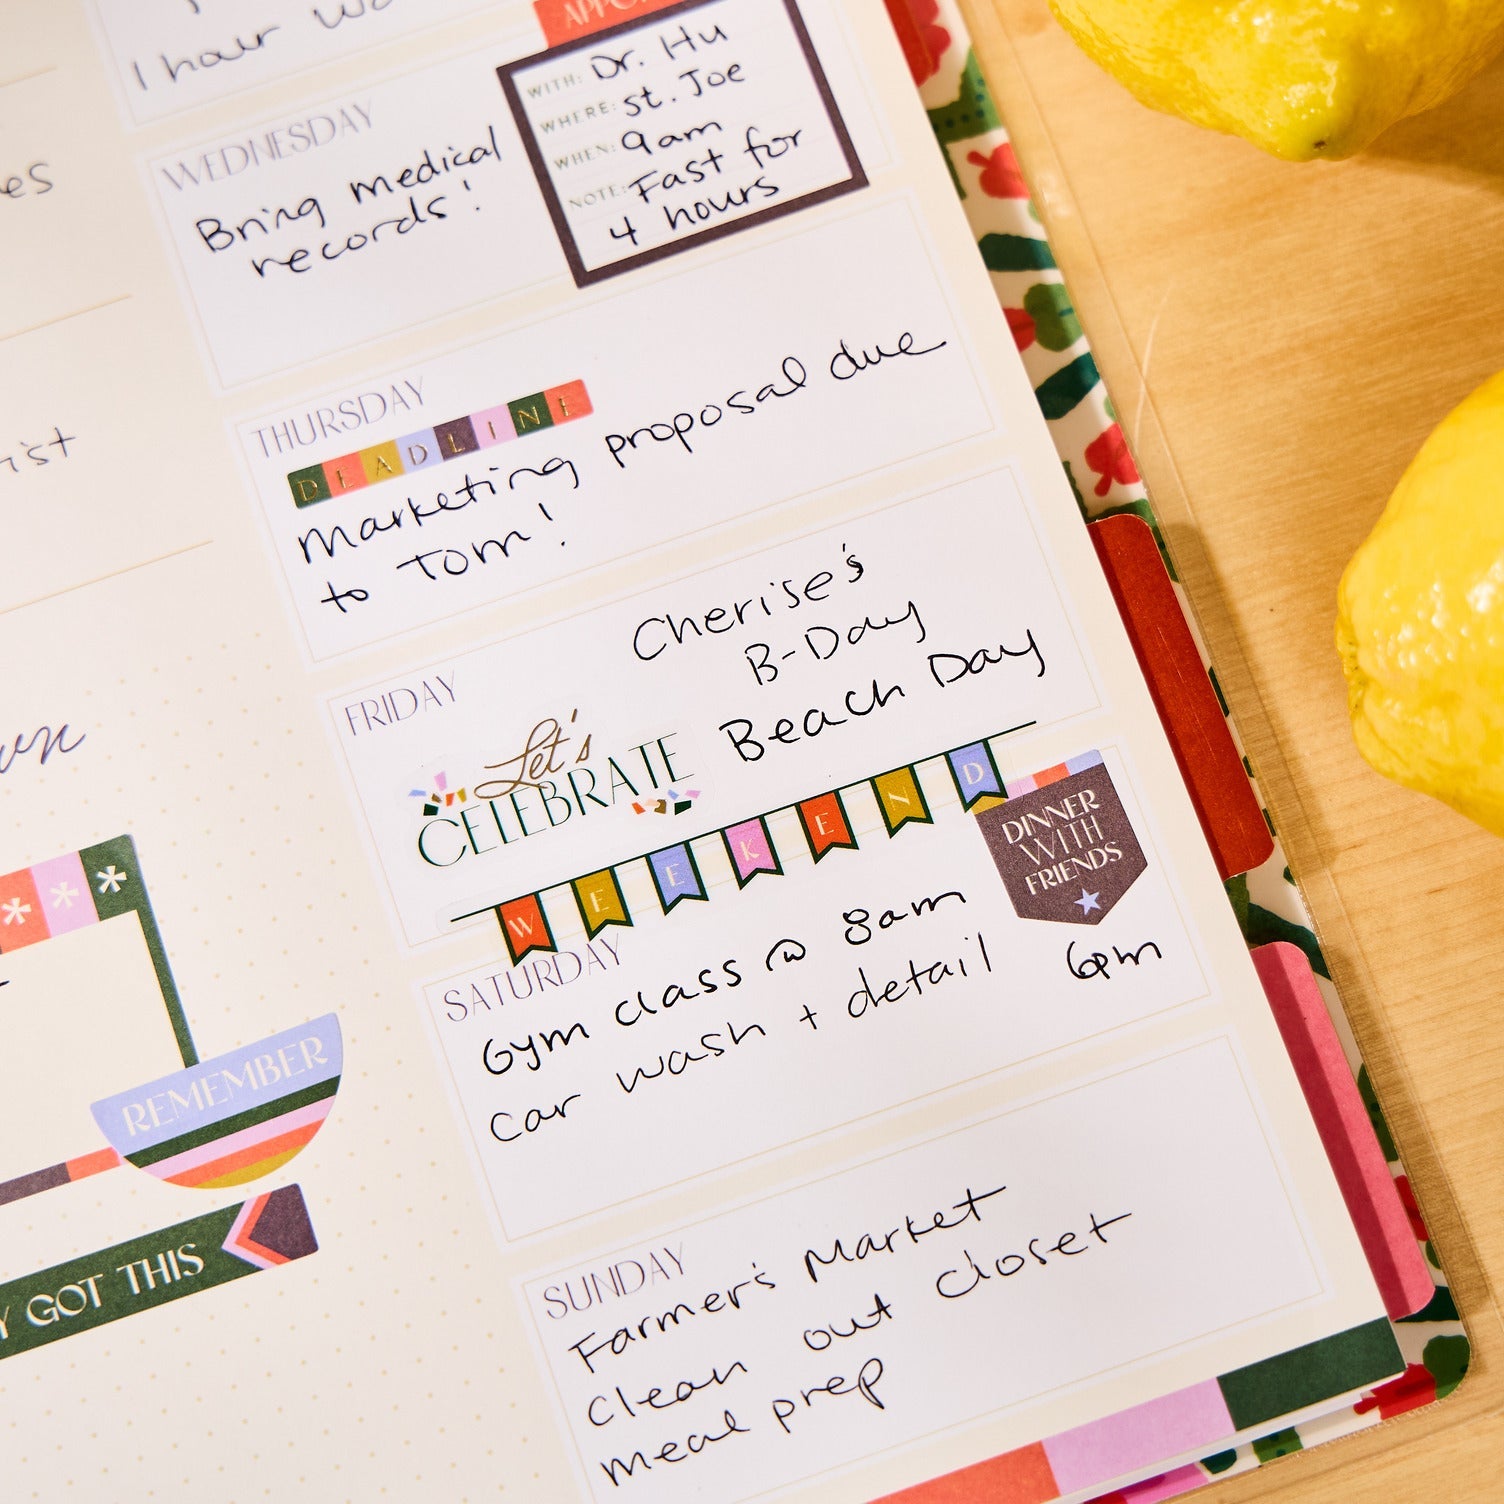 1 hour
WITH: Dr. Hu
WHERE: St. Joe
WHEN: 9am
NOTE: Fast for
4 hours
WEDNESDAY
Bring medical
records!
THURSDAY
DEADLINE
Marketing proposal due
to Tom!
FRIDAY
Cherise's
B-Day
Beach Day
Let's
CELEBRATE
WEEKEND
DINNER
WITH
FRIENDS
6pm
SATURDAY
Gym class @ 8am
Car wash + detail
SUNDAY
Farmer's Market
Clean out closet
meal prep
REMEMBER
GOT THIS